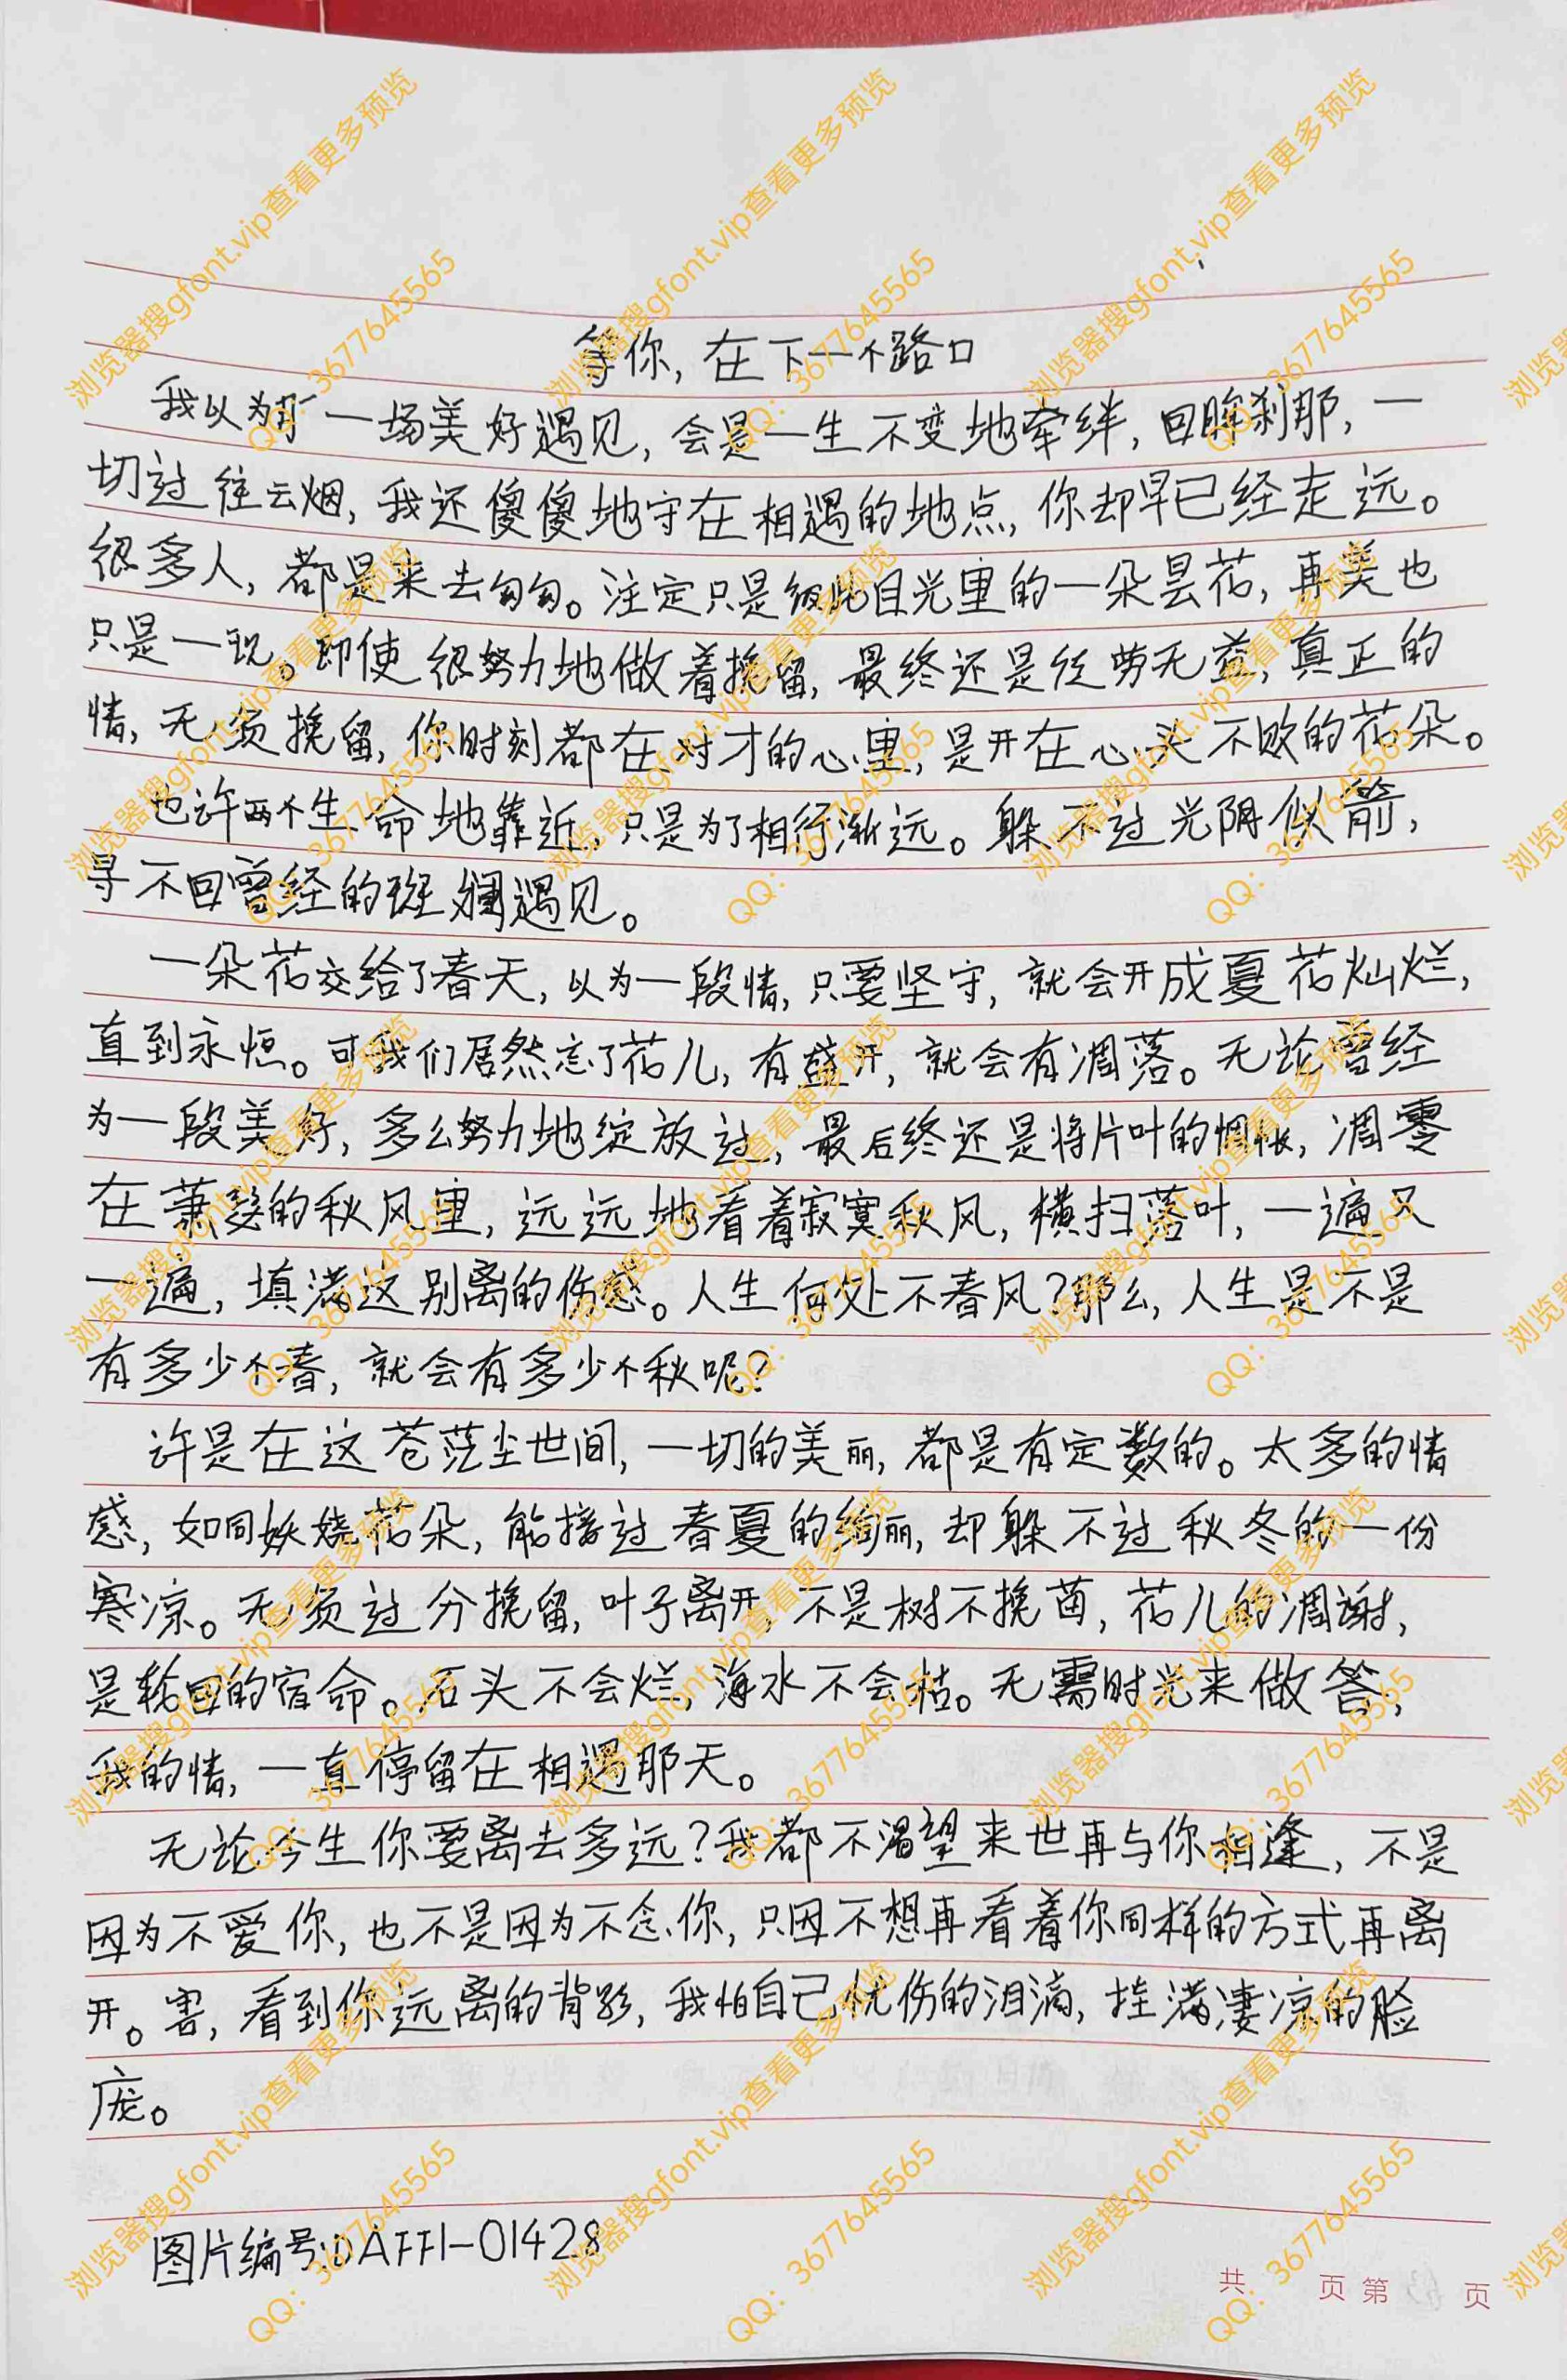 等你,在下一个路口
我以为有一场美好遇见,会是一生不变地牵绊,回眸刹那,一
切过往云烟,我还傻傻地守在相遇的地点,你却早已经走远。
很多人,都是来去匆匆。注定只是彼此目光里的一朵昙花,再美也
只是一现。即使很努力地做着挽留,最终还是徒劳无益,真正的
情,无须挽留,你时刻都在对才的心里,是开在心头不败的花朵。
也许两个生命地靠近,只是为了相行渐远。躲不过光阴似箭,
寻不回曾经的斑斓遇见。
一朵花交给了春天,以为一段情,只要坚守,就会开成夏花灿烂,
直到永恒。可我们居然忘了花儿,有盛开,就会有凋落。无论曾经
为一段美好,多么努力地绽放过,最后终还是将片叶的惆怅,凋零
在萧瑟的秋风里,远远地看着寂寞秋风,横扫落叶,一遍又
一遍,填满这别离的伤感。人生何处不春风?那么,人生是不是
有多少个春,就会有多少个秋呢?
许是在这苍茫尘世间,一切的美丽,都是有定数的。太多的情
感,如同妖娆花朵,能接过春夏的绚丽,却躲不过秋冬的一份
寒凉。无须过分挽留,叶子离开,不是树不挽留,花儿的凋谢,
是轮回的宿命。石头不会烂,海水不会枯。无需时光来做答,
我的情,一直停留在相遇那天。
无论今生你要离去多远?我都不渴望来世再与你相逢,不是
因为不爱你,也不是因为不念你,只因不想再看着你同样的方式再离
开。害,看到你远离的背影,我怕自己忧伤的泪滴,挂满凄凉的脸
庞。
图片编号:DAFF1-01428
共 页 第 页
浏览器搜gfont.vip查看更多预览
QQ:3677645565